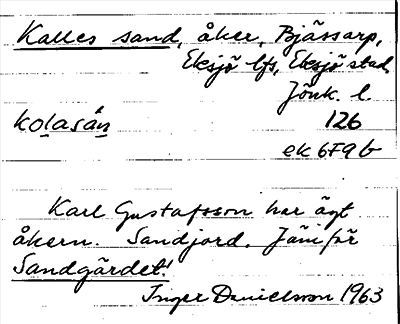 Kalles sand, åker, Bjässarp,
Eksjö lfs, Eksjö stad
Jönk. l.
kolasán 126
ek 6F9b
Karl Gustafsson har ägt
åkern. Sandjord. Jämför
Sandgärdet!
Inger Danielsson 1963